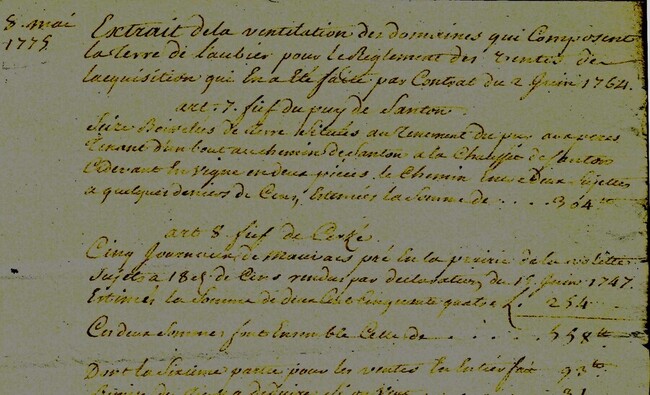 8. mai
1775
Extrait de la ventilation des domaines qui Composent
la terre de Laubier pour le Reglement des ventes de
lacquisition qui En a Eté faite par Contrat du 2 Juin 1764.
art. 7. fief du puy de Santon
Seize Boiselées de terre Situées au Tenement du puy
tenant d'un bout au chemin de Santon a la Chaussée de Santon
Cidevant En vigne en deux pieces le Chemin Entre Deux Sujettes
a quelques deniers de Cens, Estimées la Somme de ... 304 tt
art. 8. fief de
Cinq Journeaux de mauvais pré En la prairie de la
Sujets a 18 d. de Cens rendu par declaration du 15 Juin 1747.
Estimés la Somme de deux Cent Cinquante quatre 254
Ces deux Sommes font Ensemble Celle de ..... 558 tt
Dont la Sixieme partie pour les ventes En Entier fait 93 tt